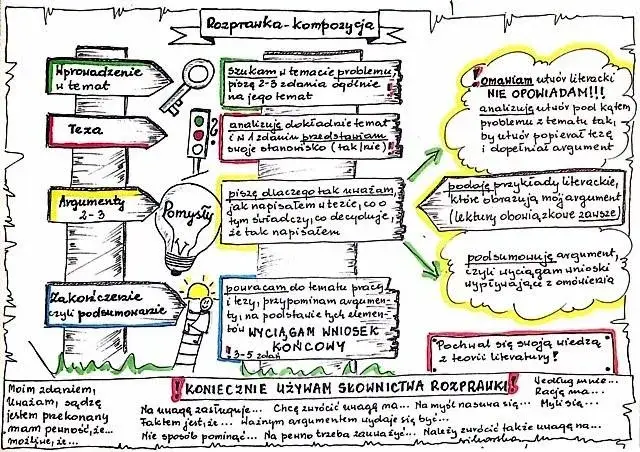 Rozprawka - kompozycja
Wprowadzenie
w temat
szukam w temacie problemu,
piszę 2-3 zdania ogólnie
na jego temat
Teza
analizuję dokładnie temat
i w 1 zdaniu przedstawiam
swoje stanowisko (tak/nie)
Argumenty
2-3
Pomysły
piszę dlaczego tak uważam,
jak napisałem w tezie, co o
tym świadczy, co decyduje,
że tak napisałem
Zakończenie
czyli podsumowanie
powracam do tematu pracy
i tezy, przypominam argumen-
ty, na podstawie tych elemen-
tów WYCIĄGAM WNIOSEK
KOŃCOWY
! 3-5 zdań
! Omawiam utwór literacki
NIE OPOWIADAM!!!
analizuję utwór pod kątem
problemu z tematu tak,
by utwór popierał tezę
i dopełniał argument
podaję przykłady literackie,
które obrazują mój argument
(lektury obowiązkowe zawsze)
podsumowuję argument,
czyli wyciągam wnioski
wypływające z omówienia
Pochwal się swoją wiedzą
z teorii literatury!
! KONIECZNIE UŻYWAM SŁOWNICTWA ROZPRAWKI!
Moim zdaniem,
Uważam, sądzę
jestem przekonany
mam pewność, że...
możliwe, że...
Na uwagę zasługuje... Chcę zwrócić uwagę na... Na myśl nasuwa się...
Faktem jest, że... Ważnym argumentem wydaje się być...
Nie sposób pominąć... Na pewno trzeba zauważyć... Należy zwrócić także uwagę na...
Według mnie...
Rację ma...
Myli się...